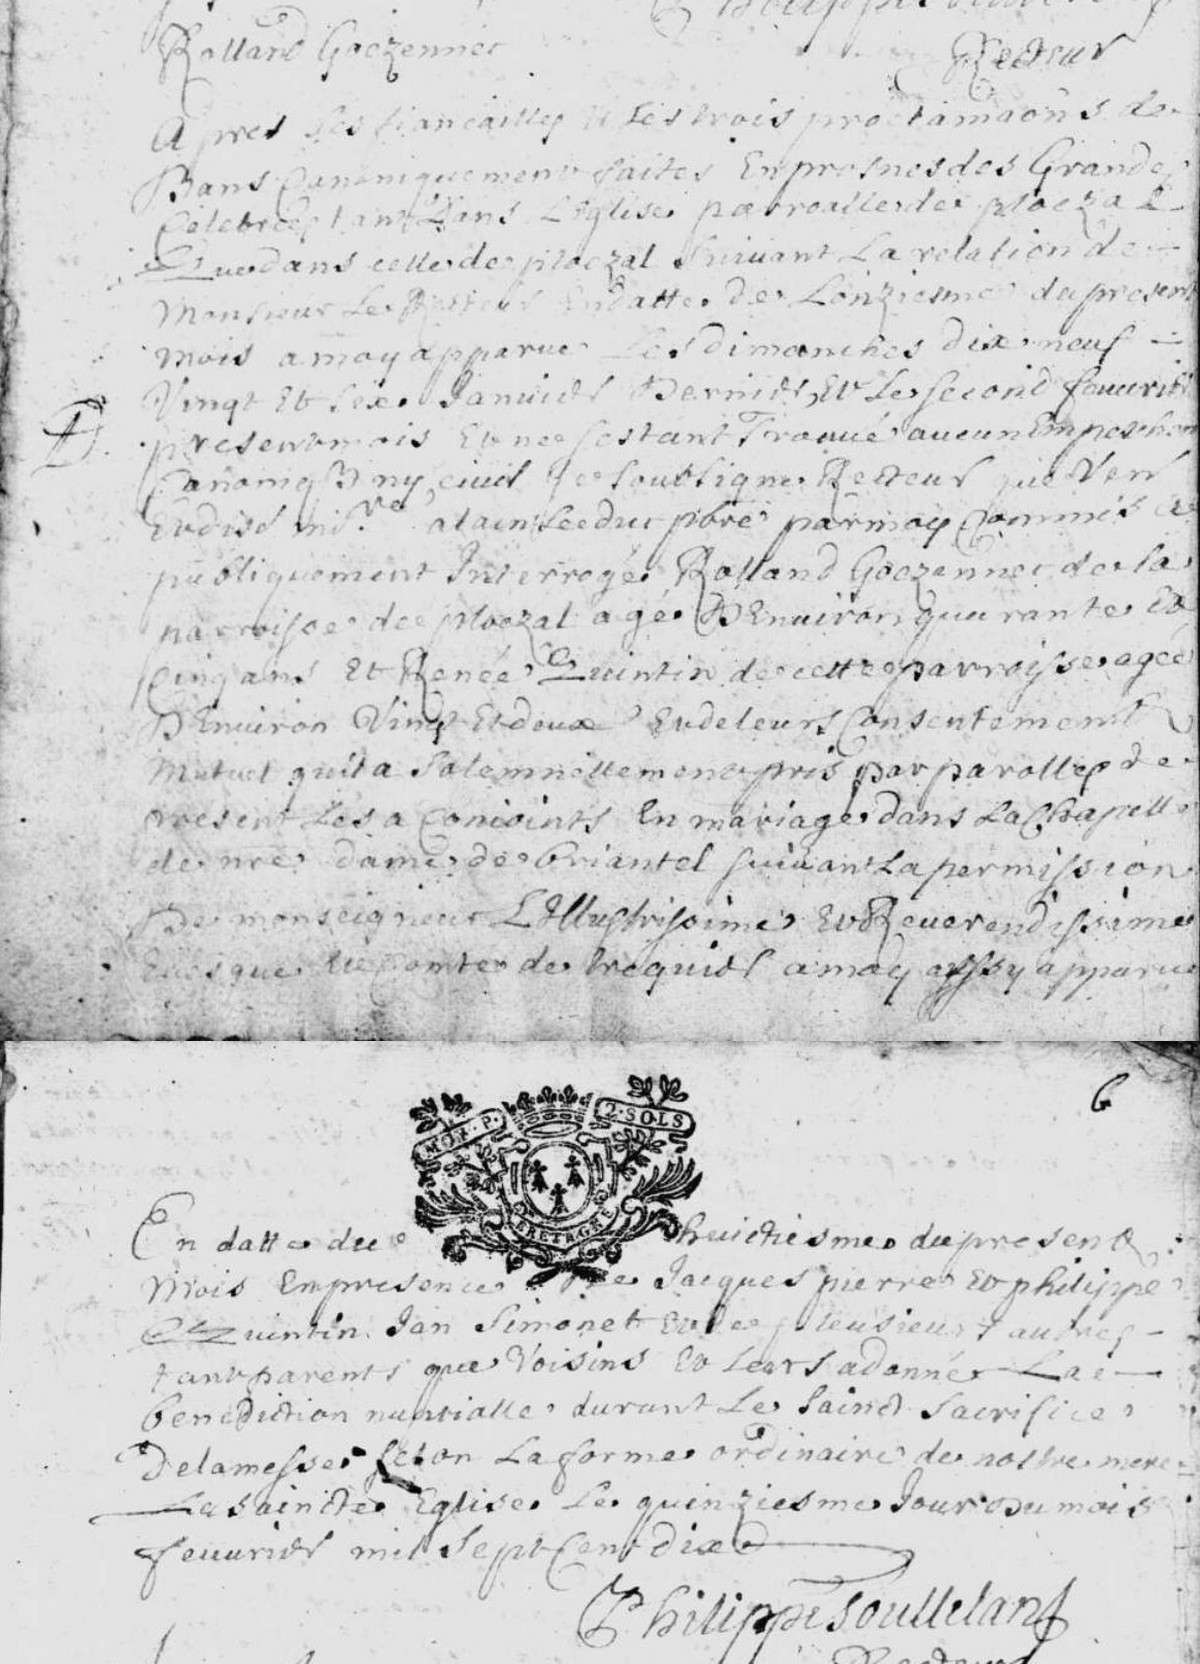 Rolland Goezennec Recteur
Apres les fiancailles et les trois proclamaõns de
Bans Canoniquement faites En prosnes des Grandes
Celebrées tant dans L'Eglise parroalle de ploezal
Que dans celle de ploezal suivant La relation de
Monsieur Le Recteur En datte de L'onziesme du present
mois a moy apparue Les dimanches dix neuf
Vingt Et six Januier Dernier, Et Le second feuurier
present mois Et ne s'estant Trouué aucun Empeschem
Canoniq ny ciuil Je soubsigne Recteur
Et disc mis.re alain Le duc pbre par moy Commis
publiquement Interrogé Rolland Goezennec de la
parroisse de ploezal agé D'Enuiron quarante Et
Cinq ans Et Renée Quintin de cette parroisse agée
D'Enuiron Vingt Et deux Et de leurs Consentement
Mutuel qu'il a solemnellement pris par parolles de
present Les a Conioints En mariage dans La Chapelle
de nre dame de briantel suiuant La permission
De monseigneur L'Illustrissime Et Reuerendissime
Euesque Et Comte de treguier a moy aussy apparue
6
MOY. P. 2. SOLS
BRETAGNE
En datte du huictiesme du present
Mois En presence de Jacques pierre Et philippe
Quintin Jan Simonet Et de plusieurs autres
tant parents que Voisins Et Leurs a donné La
benediction nuptialle durant Le sainct sacrifice
De la messe selon La forme ordinaire de nostre mere
La saincte Eglise Le quinziesme Jour Du mois
feuurier mil sept Cent dix
Philippe Soullelant
Recteur